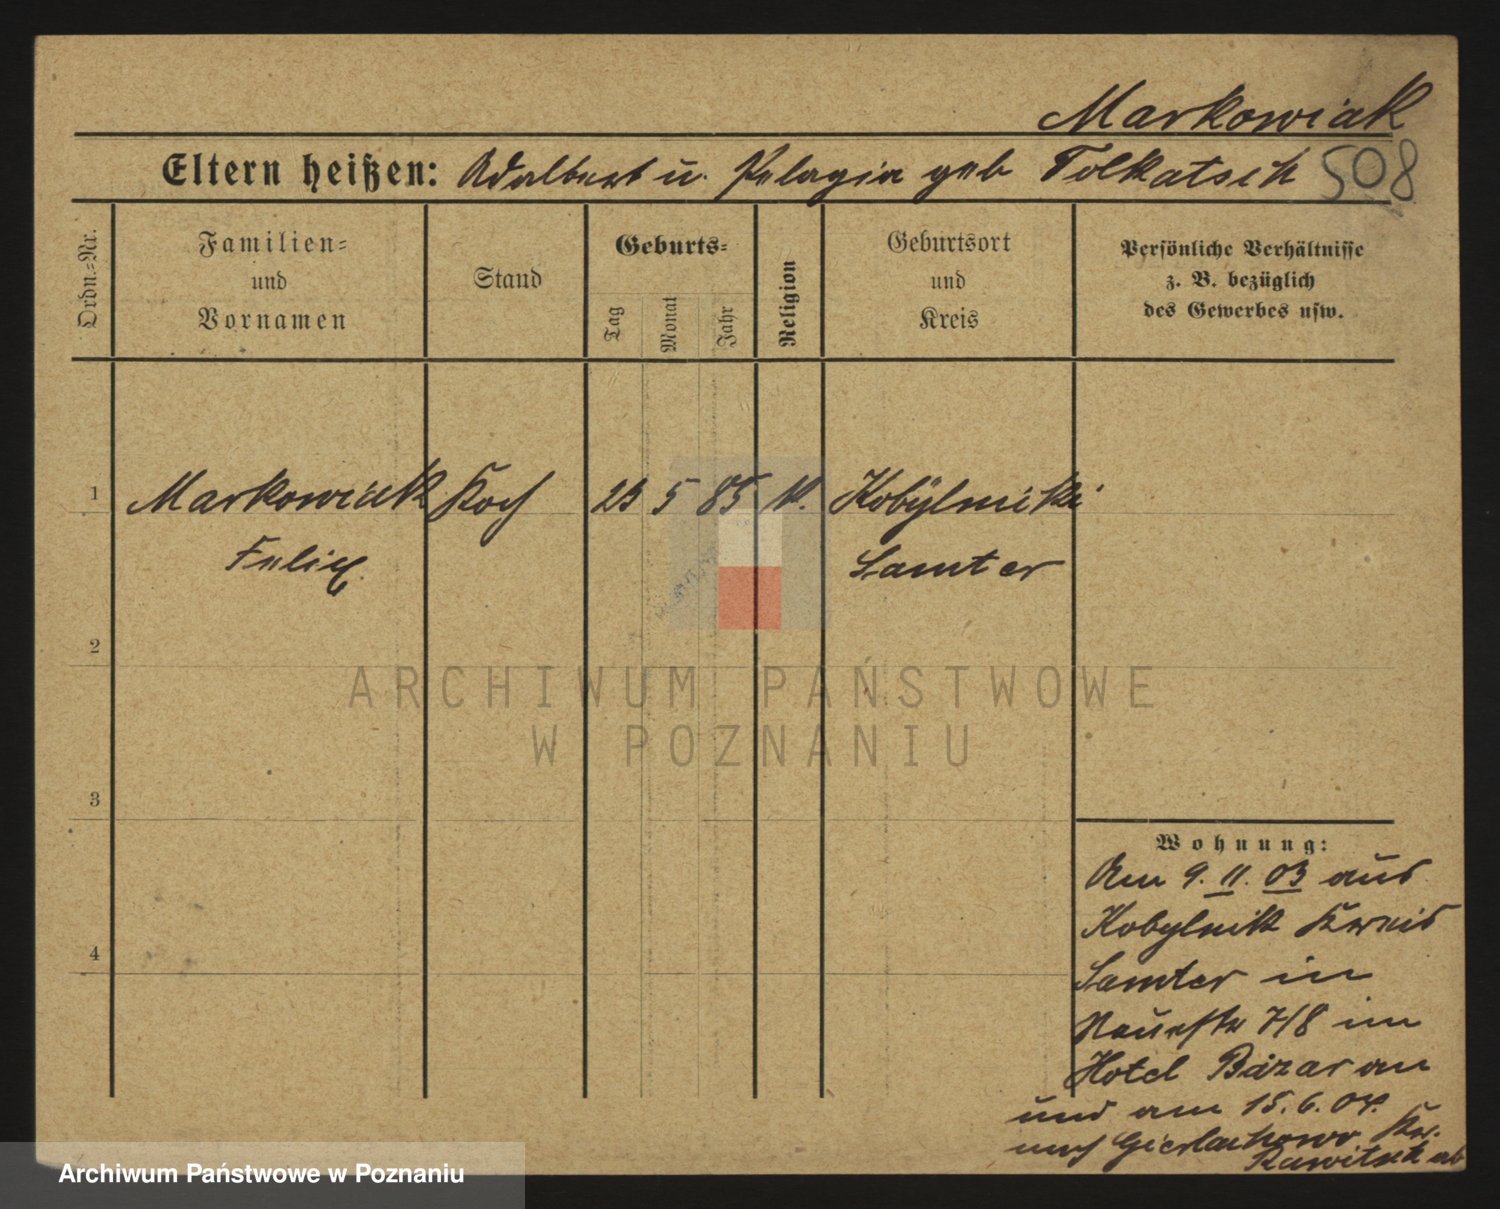 Markowiak
Eltern heißen: Adalbert u. Pelagia geb Tolkatsch 508
Ordn.=Nr.
Familien=
und
Vornamen
Stand
Geburts=
Tag
Monat
Jahr
Religion
Geburtsort
und
Kreis
Persönliche Verhältnisse
z. B. bezüglich
des Gewerbes usw.
1 Markowiak Koch 23 5 85 k. Kobylniki
Felix Samter
2
3
4
Wohnung:
Am 9. 11. 03 aus
Kobylnik Kreis
Samter in
Neuestr 7/8 im
Hotel Bazar an
und am 15. 6. 04.
nach Gierlachowo Kr.
Rawitsch ab
ARCHIWUM PAŃSTWOWE
W POZNANIU
Archiwum Państwowe w Poznaniu